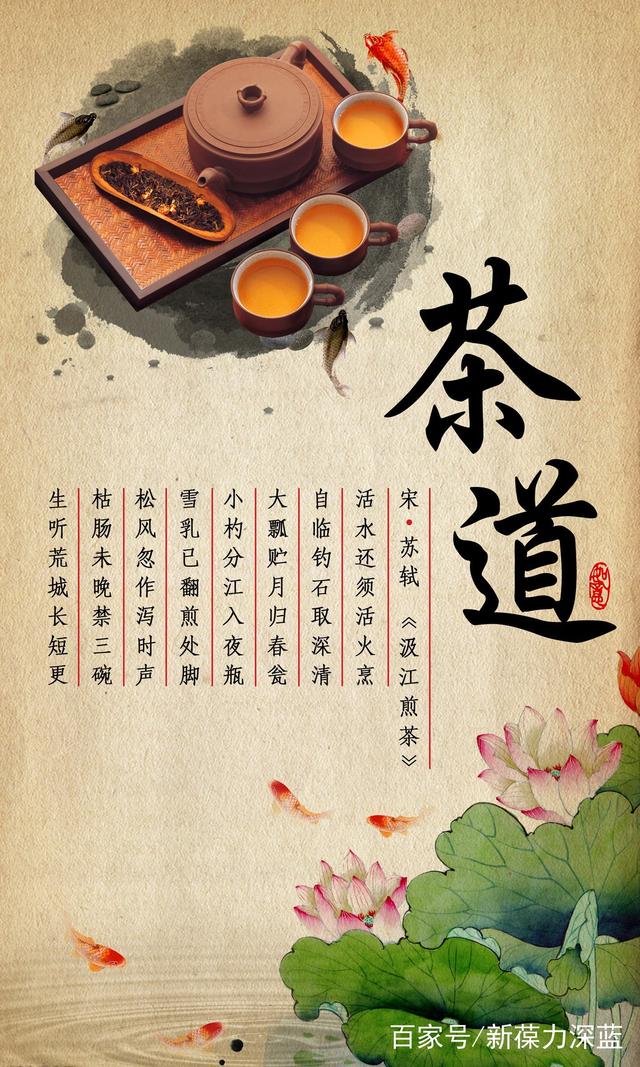 茶道
如意
宋·苏轼 《汲江煎茶》
活水还须活火烹
自临钓石取深清
大瓢贮月归春瓮
小杓分江入夜瓶
雪乳已翻煎处脚
松风忽作泻时声
枯肠未晚禁三碗
生听荒城长短更
百家号/新葆力深蓝